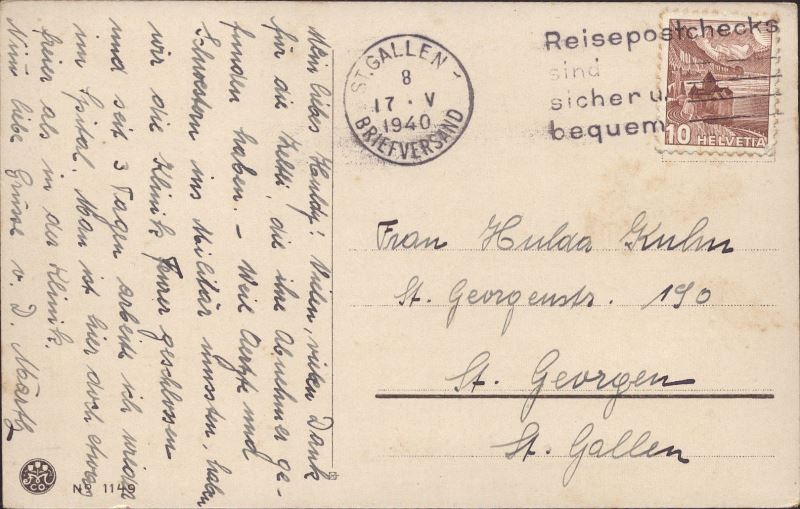 Mein liebes Huldy! Vielen, vielen Dank
für die Zetteli, die ihre Abnehmer ge-
funden haben. – Weil Aerzte und
Schwestern ins Militär mussten, haben
wir die Klinik Feurer geschlossen
und seit 3 Tagen arbeite ich wieder
im Spital. Man ist hier doch etwas
freier als in der Klinik.
Nimm liebe Grüsse v. D. Märthy
ST. GALLEN 1
8
17 · V
1940
BRIEFVERSAND
Reisepostchecks
sind
sicher u.
bequem
10 HELVETIA
Frau Hulda Kuhn
St. Georgenstr. 190
St. Georgen
St. Gallen
CO
No 1149